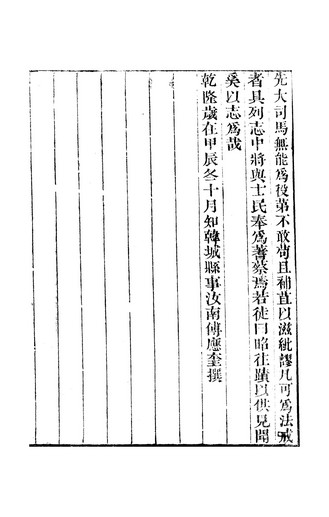 先大司馬無能爲役第不敢苟且補苴以滋紕謬凡可爲法戒
者具列志中將與士民奉爲蓍蔡焉若徒曰昭往蹟以供見聞
奚以志爲哉
乾隆歲在甲辰冬十月知韓城縣事汝南傅應奎撰